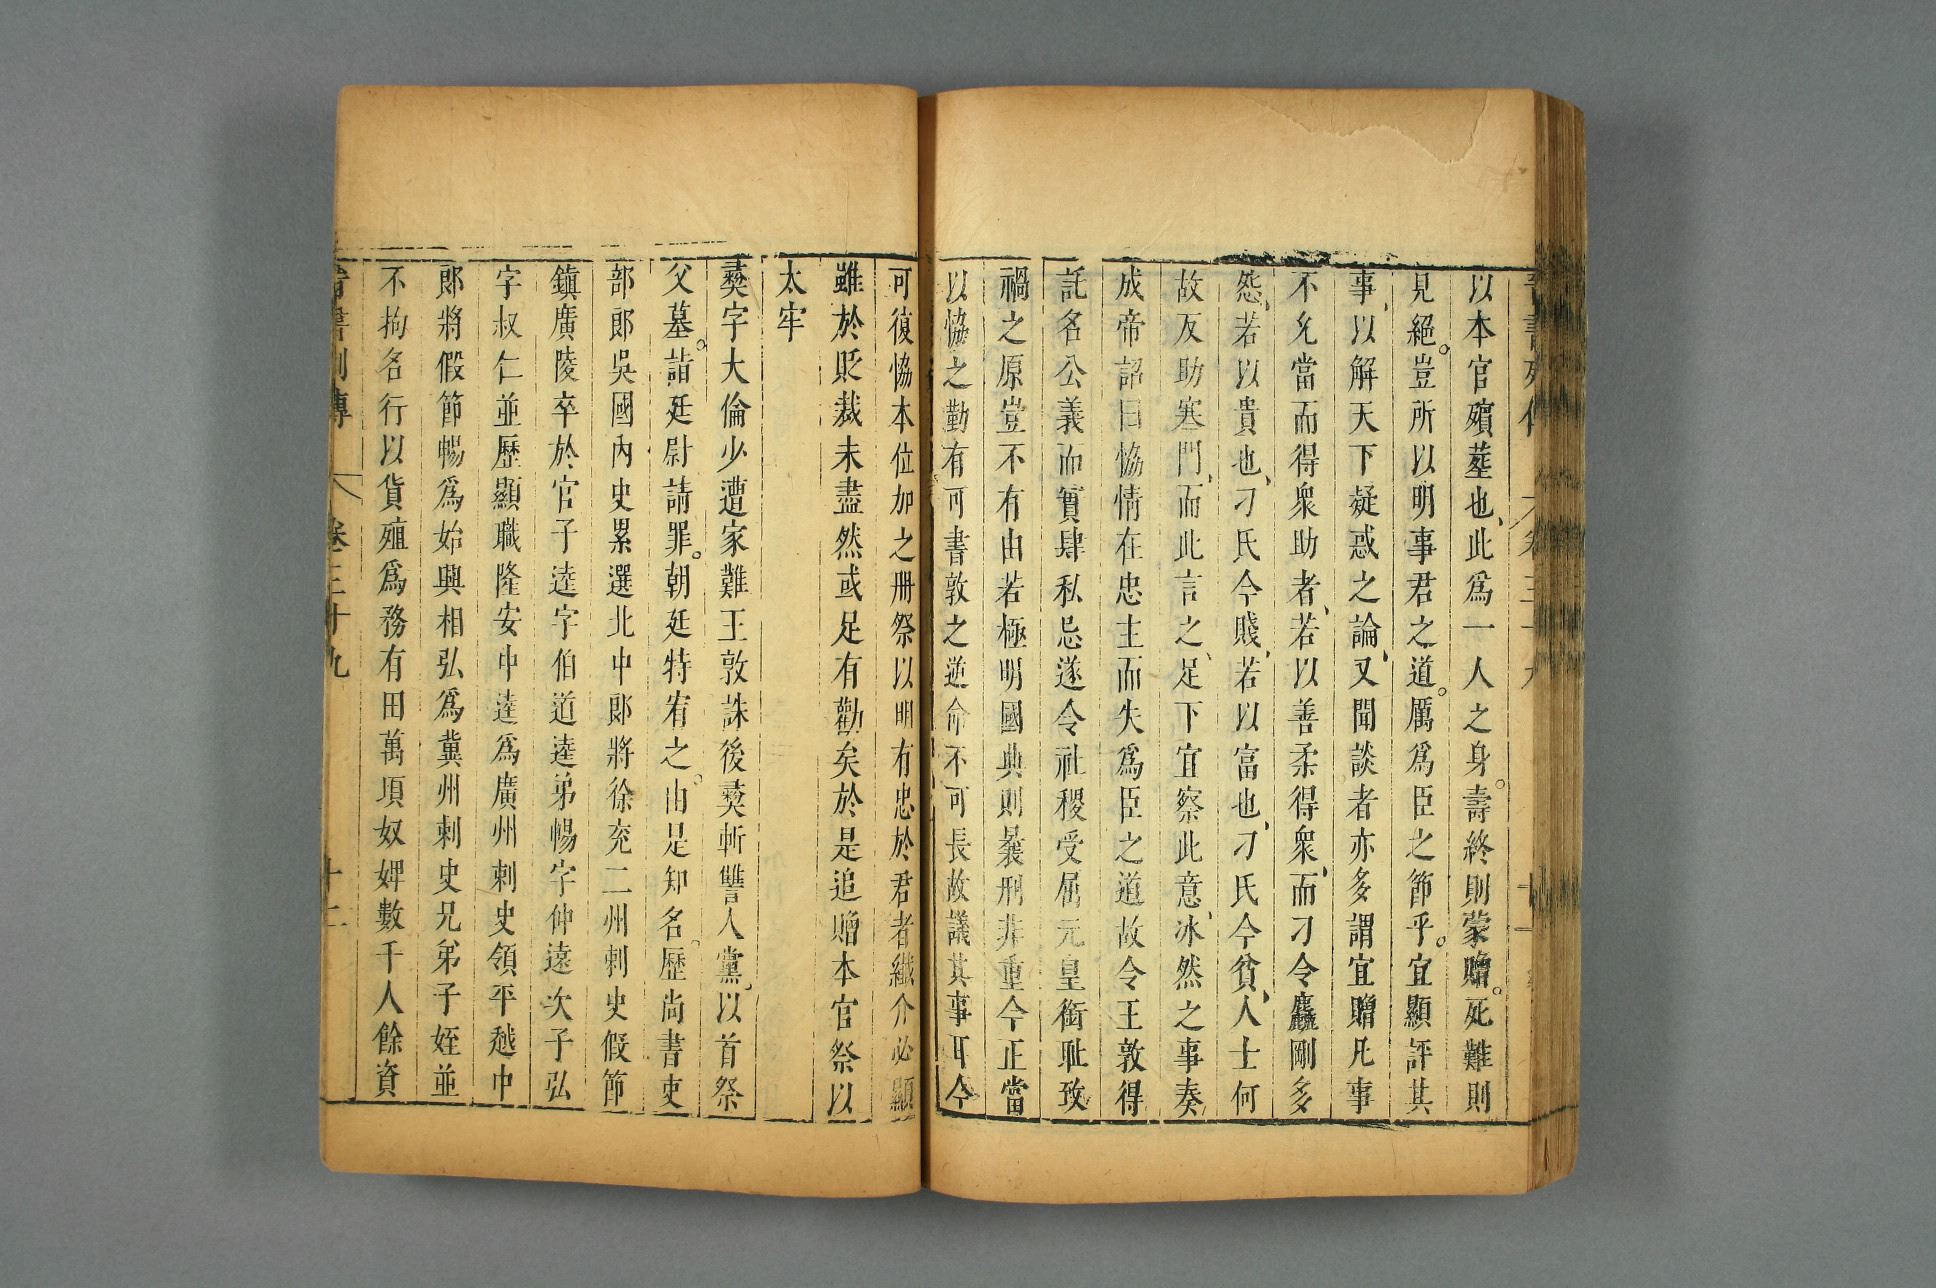 以本官殯葬也此爲一人之身壽終則蒙贈死難則
見絕豈所以明事君之道厲爲臣之節乎宜顯評其
事以解天下疑惑之論又聞談者亦多謂宜贈凡事
不允當而得衆助者若以善柔得衆而刁令麤剛多
怨若以貴也刁氏今賤若以富也刁氏今貧人士何
故反助寒門而此言之足下宜察此意冰然之事奏
成帝詔曰恊情在忠主而失爲臣之道故令王敦得
託名公義而實肆私忌遂令社稷受屈元皇銜耻致
禍之原豈不有由若極明國典則曩刑非重今正當
以恊之勤有可書敦之逆命不可長故議其事耳今
可復恊本位加之册祭以明有忠於君者纖介必顯
雖於貶裁未盡然或足有勸矣於是追贈本官祭以
太牢
彝字大倫少遭家難王敦誅後彝斬讐人黨以首祭
父墓詣廷尉請罪朝廷特宥之由是知名歷尚書吏
部郎吳國內史累選北中郎將徐兗二州刺史假節
鎮廣陵卒於官子逵字伯道逵弟暢字仲遠次子弘
字叔仁並歷顯職隆安中逵爲廣州刺史領平越中
郎將假節暢爲始興相弘爲冀州刺史兄弟子姪並
不拘名行以貨殖爲務有田萬項奴婢數千人餘資
晉書列傳 卷三十九 十二